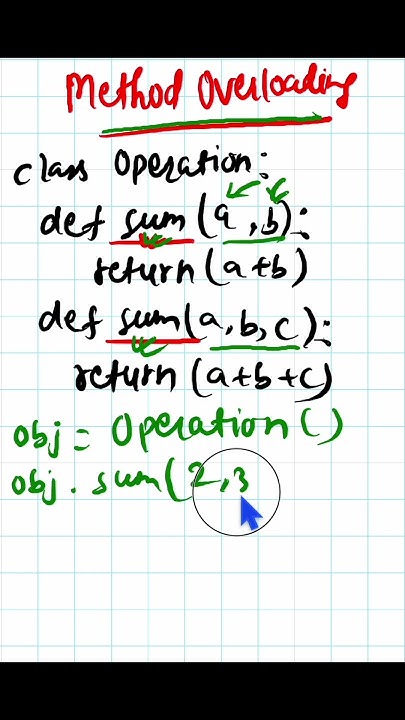 Method Overloading
class Operation:
def sum(a,b):
return(a+b)
def sum(a,b,c):
return(a+b+c)
obj = Operation()
obj.sum(2,3